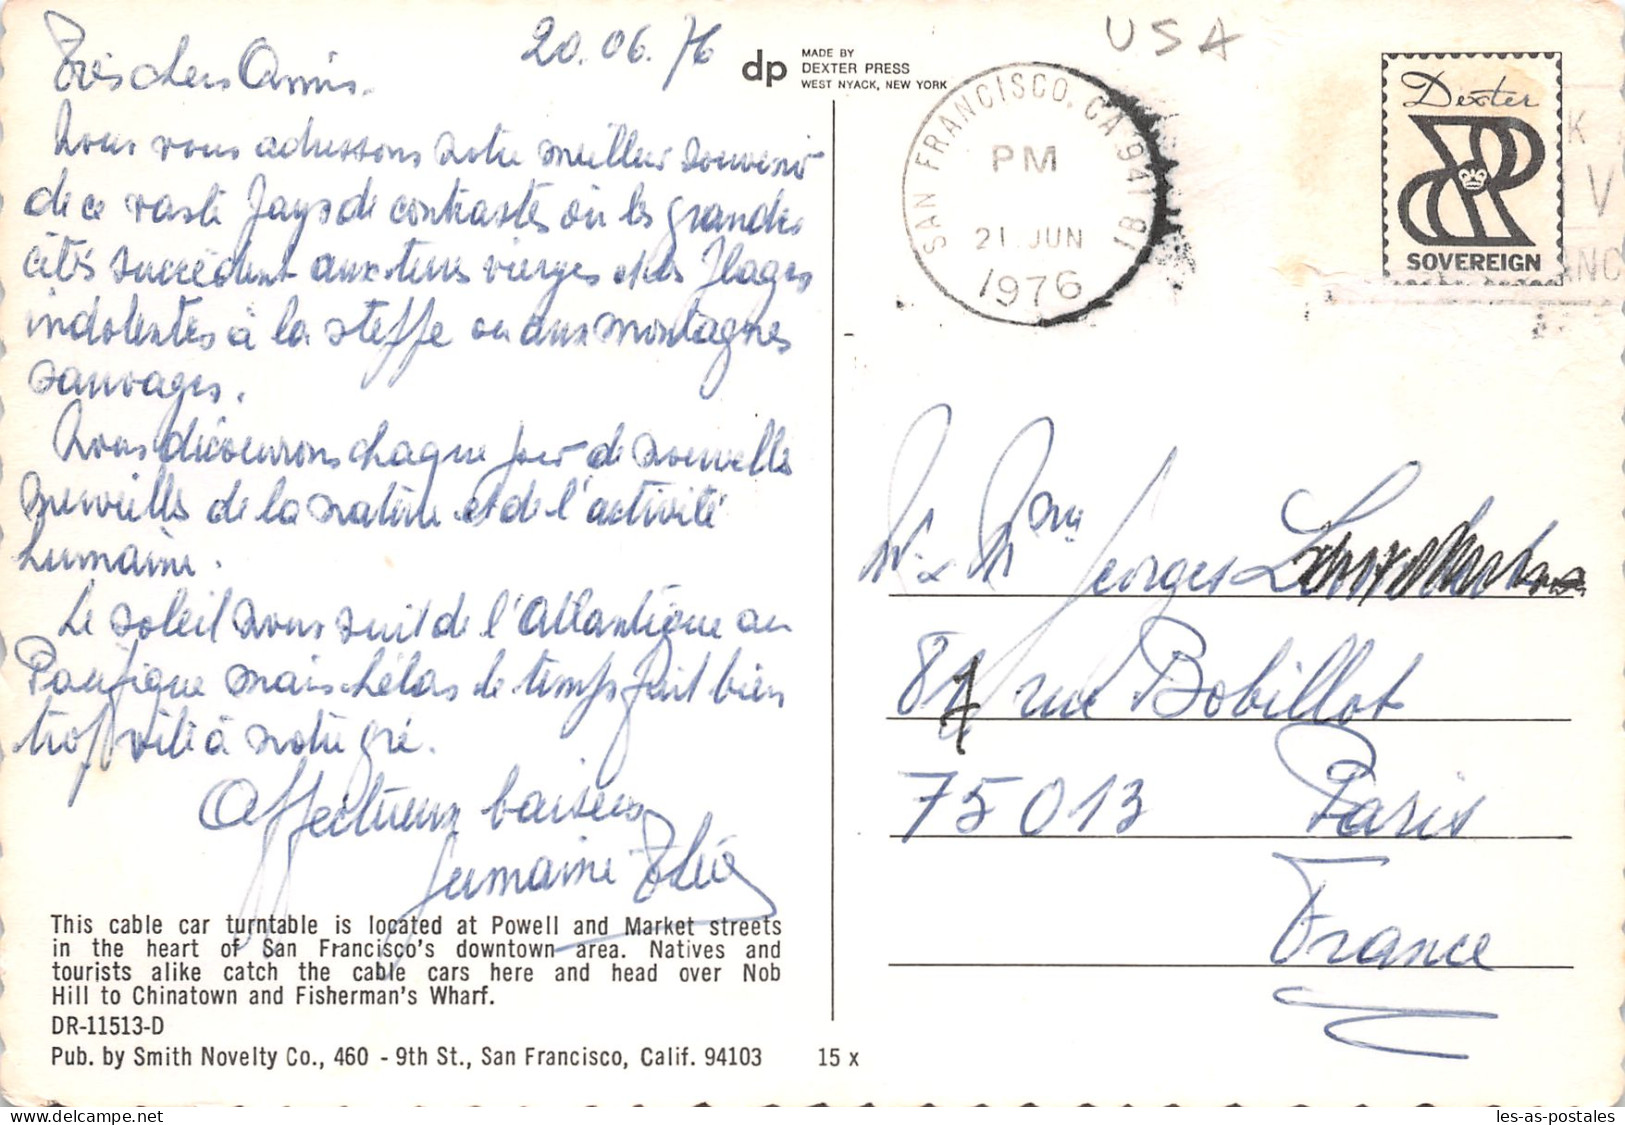 20.06.76
Très chers Amis.
Nous vous adressons notre meilleur souvenir
de ce vaste pays de contrastes où les grandes
cités succèdent aux terres vierges et les plages
indolentes à la steppe ou aux montagnes
sauvages.
Nous découvrons chaque jour de nouvelles
merveilles de la nature et de l'activité
humaine.
Le soleil nous suit de l'Atlantique au
Pacifique mais hélas le temps fuit bien
trop vite à notre gré.
Affectueux baisers
Germaine
This cable car turntable is located at Powell and Market streets
in the heart of San Francisco's downtown area. Natives and
tourists alike catch the cable cars here and head over Nob
Hill to Chinatown and Fisherman's Wharf.
DR-11513-D
Pub. by Smith Novelty Co., 460 - 9th St., San Francisco, Calif. 94103
15 x
dp
MADE BY
DEXTER PRESS
WEST NYACK, NEW YORK
USA
SAN FRANCISCO, CA 941
PM
21 JUN
1976
1B
Dexter
SOVEREIGN
K
V
ANC
M. & Mme Georges
81 rue Bobillot
75013 Paris
France
les-as-postales